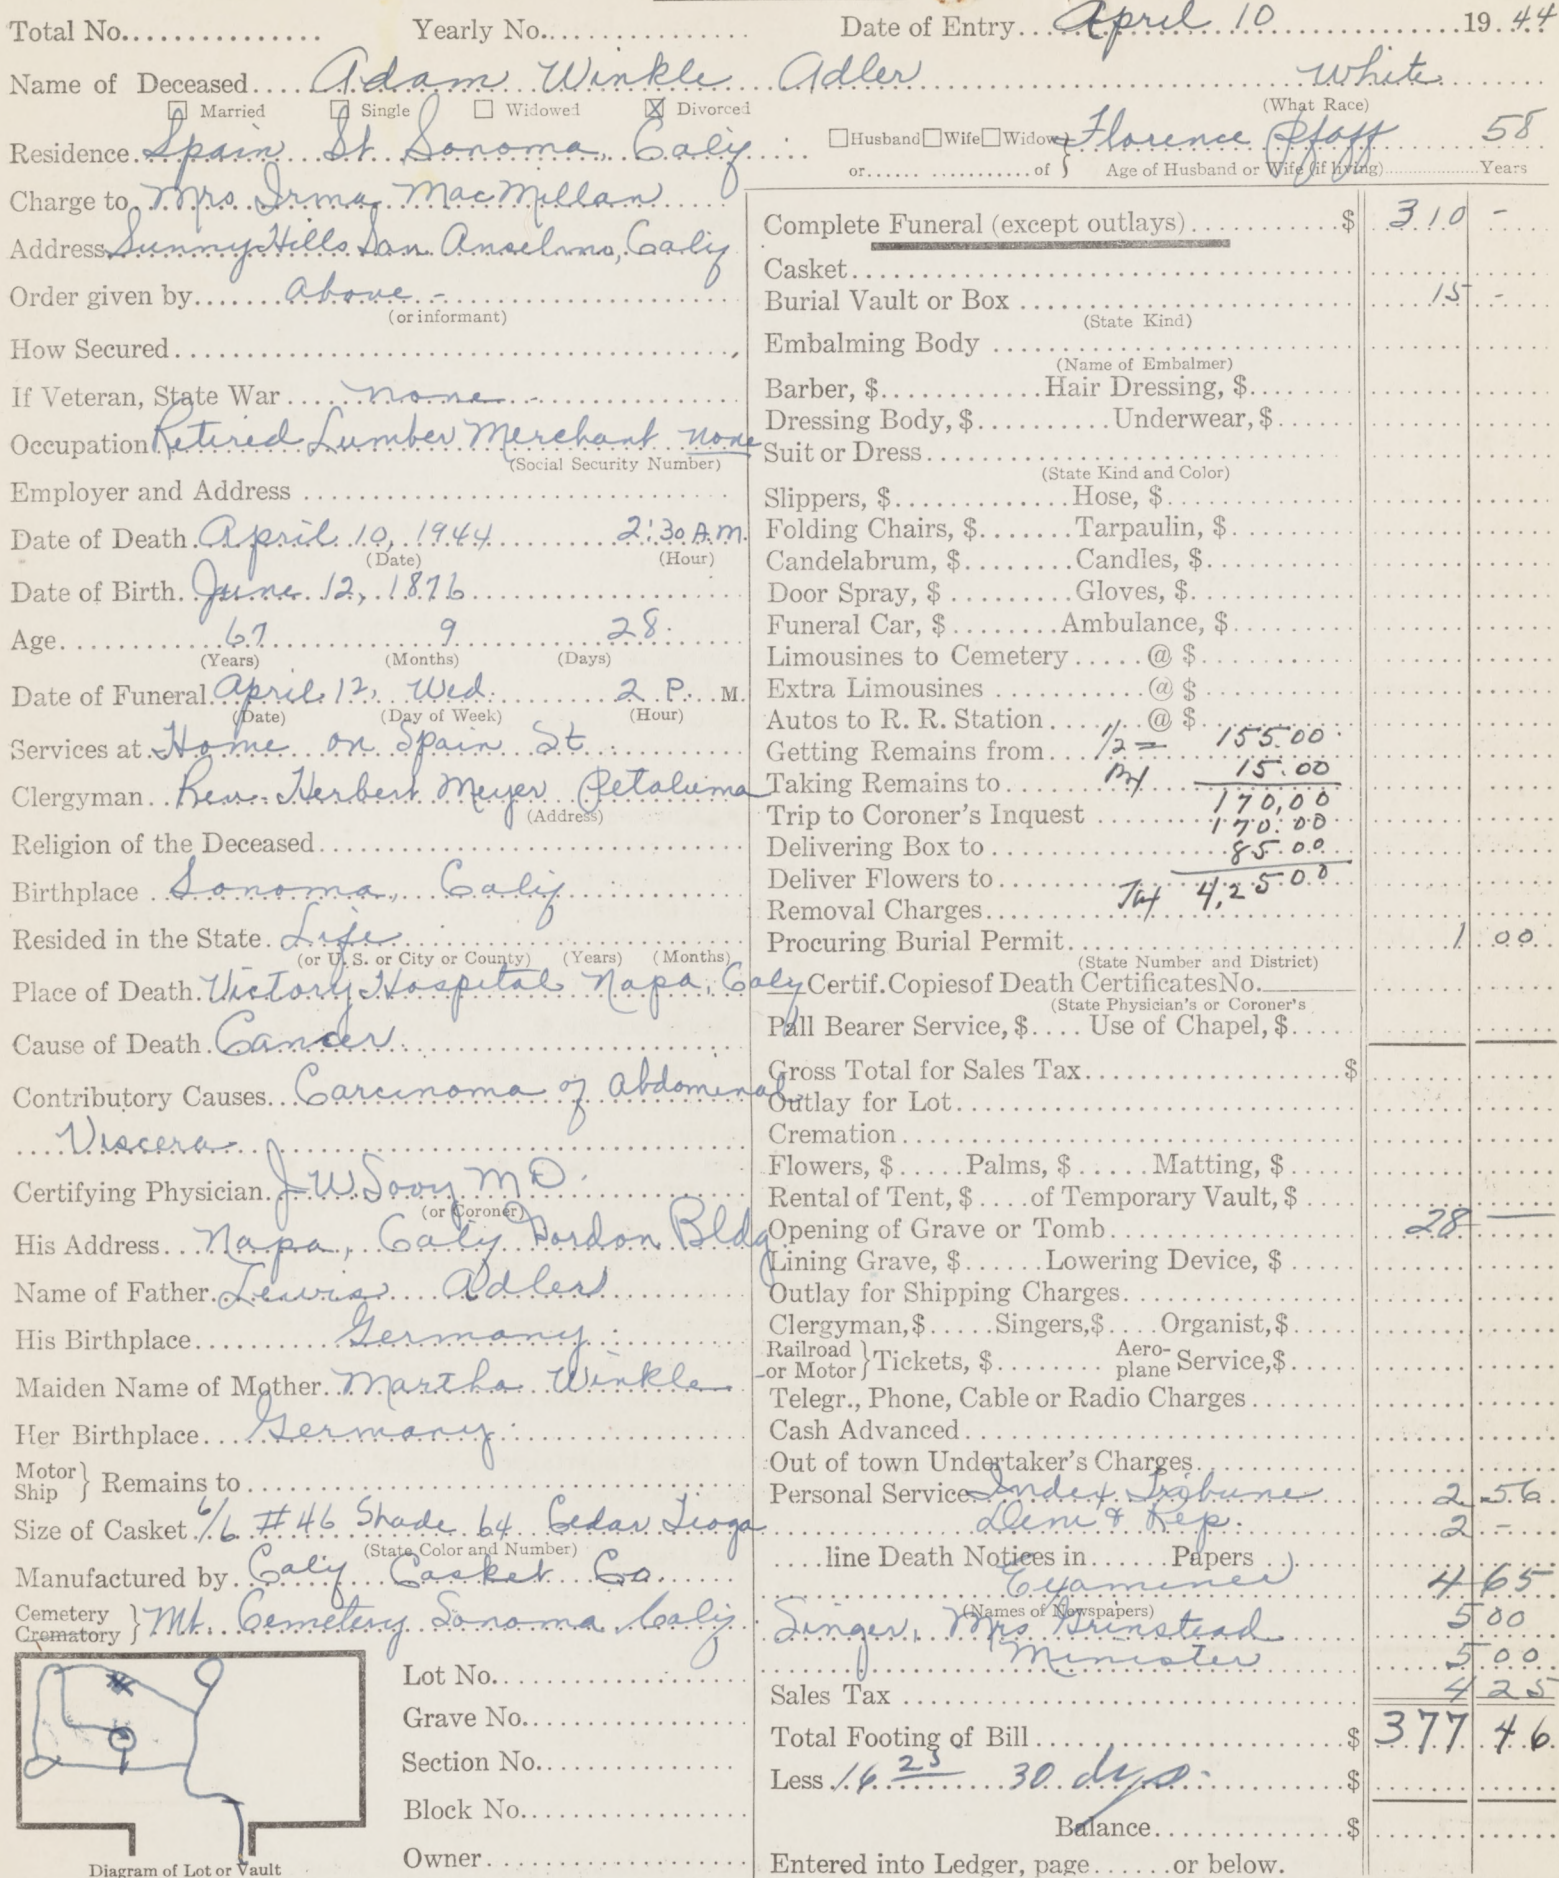 Total No............... Yearly No............... Date of Entry... April 10 ............19.44
Name of Deceased.... Adam Winkle Adler ............ White
☐ Married ☐ Single ☐ Widowed ☒ Divorced (What Race)
Residence. Spain St. Sonoma, Calif
☐Husband☐Wife☐Widow } Florence Pfaff 58
or...... ............of } Age of Husband or Wife (if living)............ Years
Charge to Mrs. Irma MacMillan
Address Sunny Hills San Anselmo, Calif
Order given by....... Above -
(or informant)
How Secured
If Veteran, State War..... none -
Occupation Retired Lumber Merchant none
(Social Security Number)
Employer and Address
Date of Death. April 10, 1944 2:30 A.M.
(Date) (Hour)
Date of Birth. June 12, 1876
Age 67 9 28
(Years) (Months) (Days)
Date of Funeral April 12, Wed. 2 P. M.
(Date) (Day of Week) (Hour)
Services at Home on Spain St
Clergyman.. Rev. Herbert Meyer Petaluma
(Address)
Religion of the Deceased
Birthplace .. Sonoma, Calif
Resided in the State. Life
(or U.S. or City or County) (Years) (Months)
Place of Death. Victory Hospital Napa, Calif
Cause of Death. Cancer
Contributory Causes... Carcinoma of Abdominal
Viscera
Certifying Physician. J. W. MD.
(or Coroner)
His Address... Napa, Calif Gordon Bldg
Name of Father. Lewis Adler
His Birthplace....... Germany
Maiden Name of Mother. Martha Winkle
Her Birthplace.... Germany
Motor
Ship } Remains to
Size of Casket 6/6 #46 Shade 64 Cedar Tioga
(State Color and Number)
Manufactured by. Calif Casket Co.
Cemetery
Crematory } Mt. Cemetery Sonoma, Calif
Lot No.
Grave No.
Section No.
Block No.
Owner
Diagram of Lot or Vault
Complete Funeral (except outlays)............$ 310 -
Casket
Burial Vault or Box 15 -
(State Kind)
Embalming Body
(Name of Embalmer)
Barber, $............Hair Dressing, $
Dressing Body, $.......... Underwear, $
Suit or Dress
(State Kind and Color)
Slippers, $.............Hose, $
Folding Chairs, $.......Tarpaulin, $
Candelabrum, $.........Candles, $
Door Spray, $ ..........Gloves, $
Funeral Car, $ .........Ambulance, $
Limousines to Cemetery ......@ $
Extra Limousines ............@ $
Autos to R. R. Station .......@ $
Getting Remains from... 1/2 = 155.00
Taking Remains to 15.00
170.00
Trip to Coroner's Inquest 170.00
Delivering Box to 85.00
Deliver Flowers to Tax 4,2500
Removal Charges
Procuring Burial Permit 1 00
(State Number and District)
Certif.Copiesof Death CertificatesNo.
(State Physician's or Coroner's
Pall Bearer Service, $.... Use of Chapel, $
Gross Total for Sales Tax............$
Outlay for Lot
Cremation
Flowers, $......Palms, $..... Matting, $
Rental of Tent, $ ....of Temporary Vault, $
Opening of Grave or Tomb 28 —
Lining Grave, $.......Lowering Device, $
Outlay for Shipping Charges
Clergyman,$.....Singers,$....Organist,$
Railroad
or Motor } Tickets, $......... Aero-
plane Service,$
Telegr., Phone, Cable or Radio Charges
Cash Advanced
Out of town Undertaker's Charges
Personal Service Index Tribune 2 56
Dem & Rep. 2 -
....line Death Notices in.......Papers
Examiner 4 65
(Names of Newspapers)
Singer, Mrs Grinstead 5 00
Minister 5 00
Sales Tax 4 25
Total Footing of Bill............$ 377 46
Less 16 25 30 dys. $
Balance............$
Entered into Ledger, page......or below.